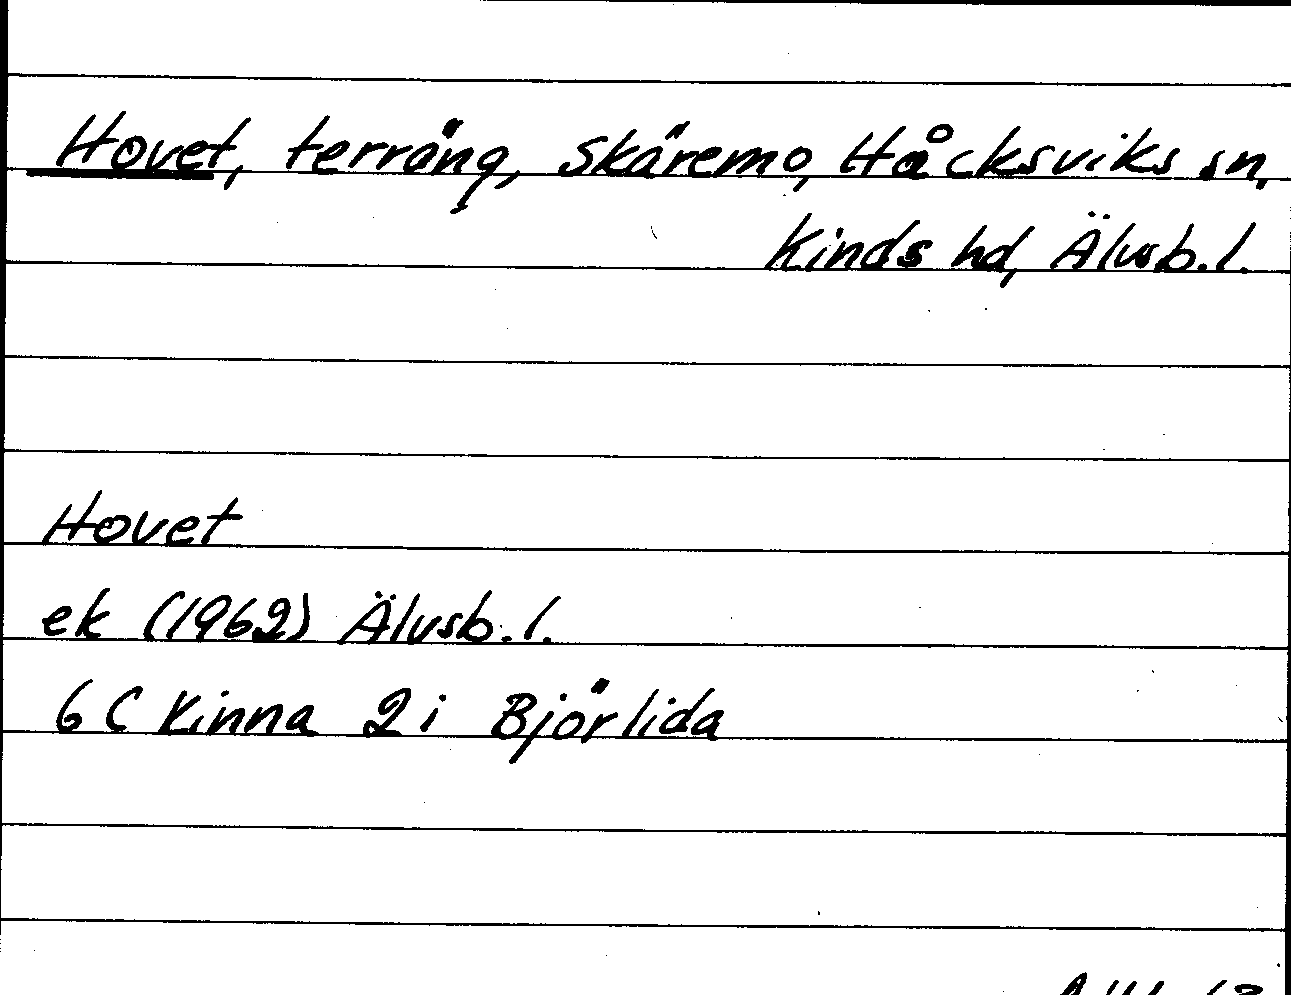 Hovet, terräng, Skäremo, Håcksviks sn,
Kinds hd, Älvsb.l.
Hovet
ek (1962) Älvsb.l.
6 C Kinna 2 i Björlida